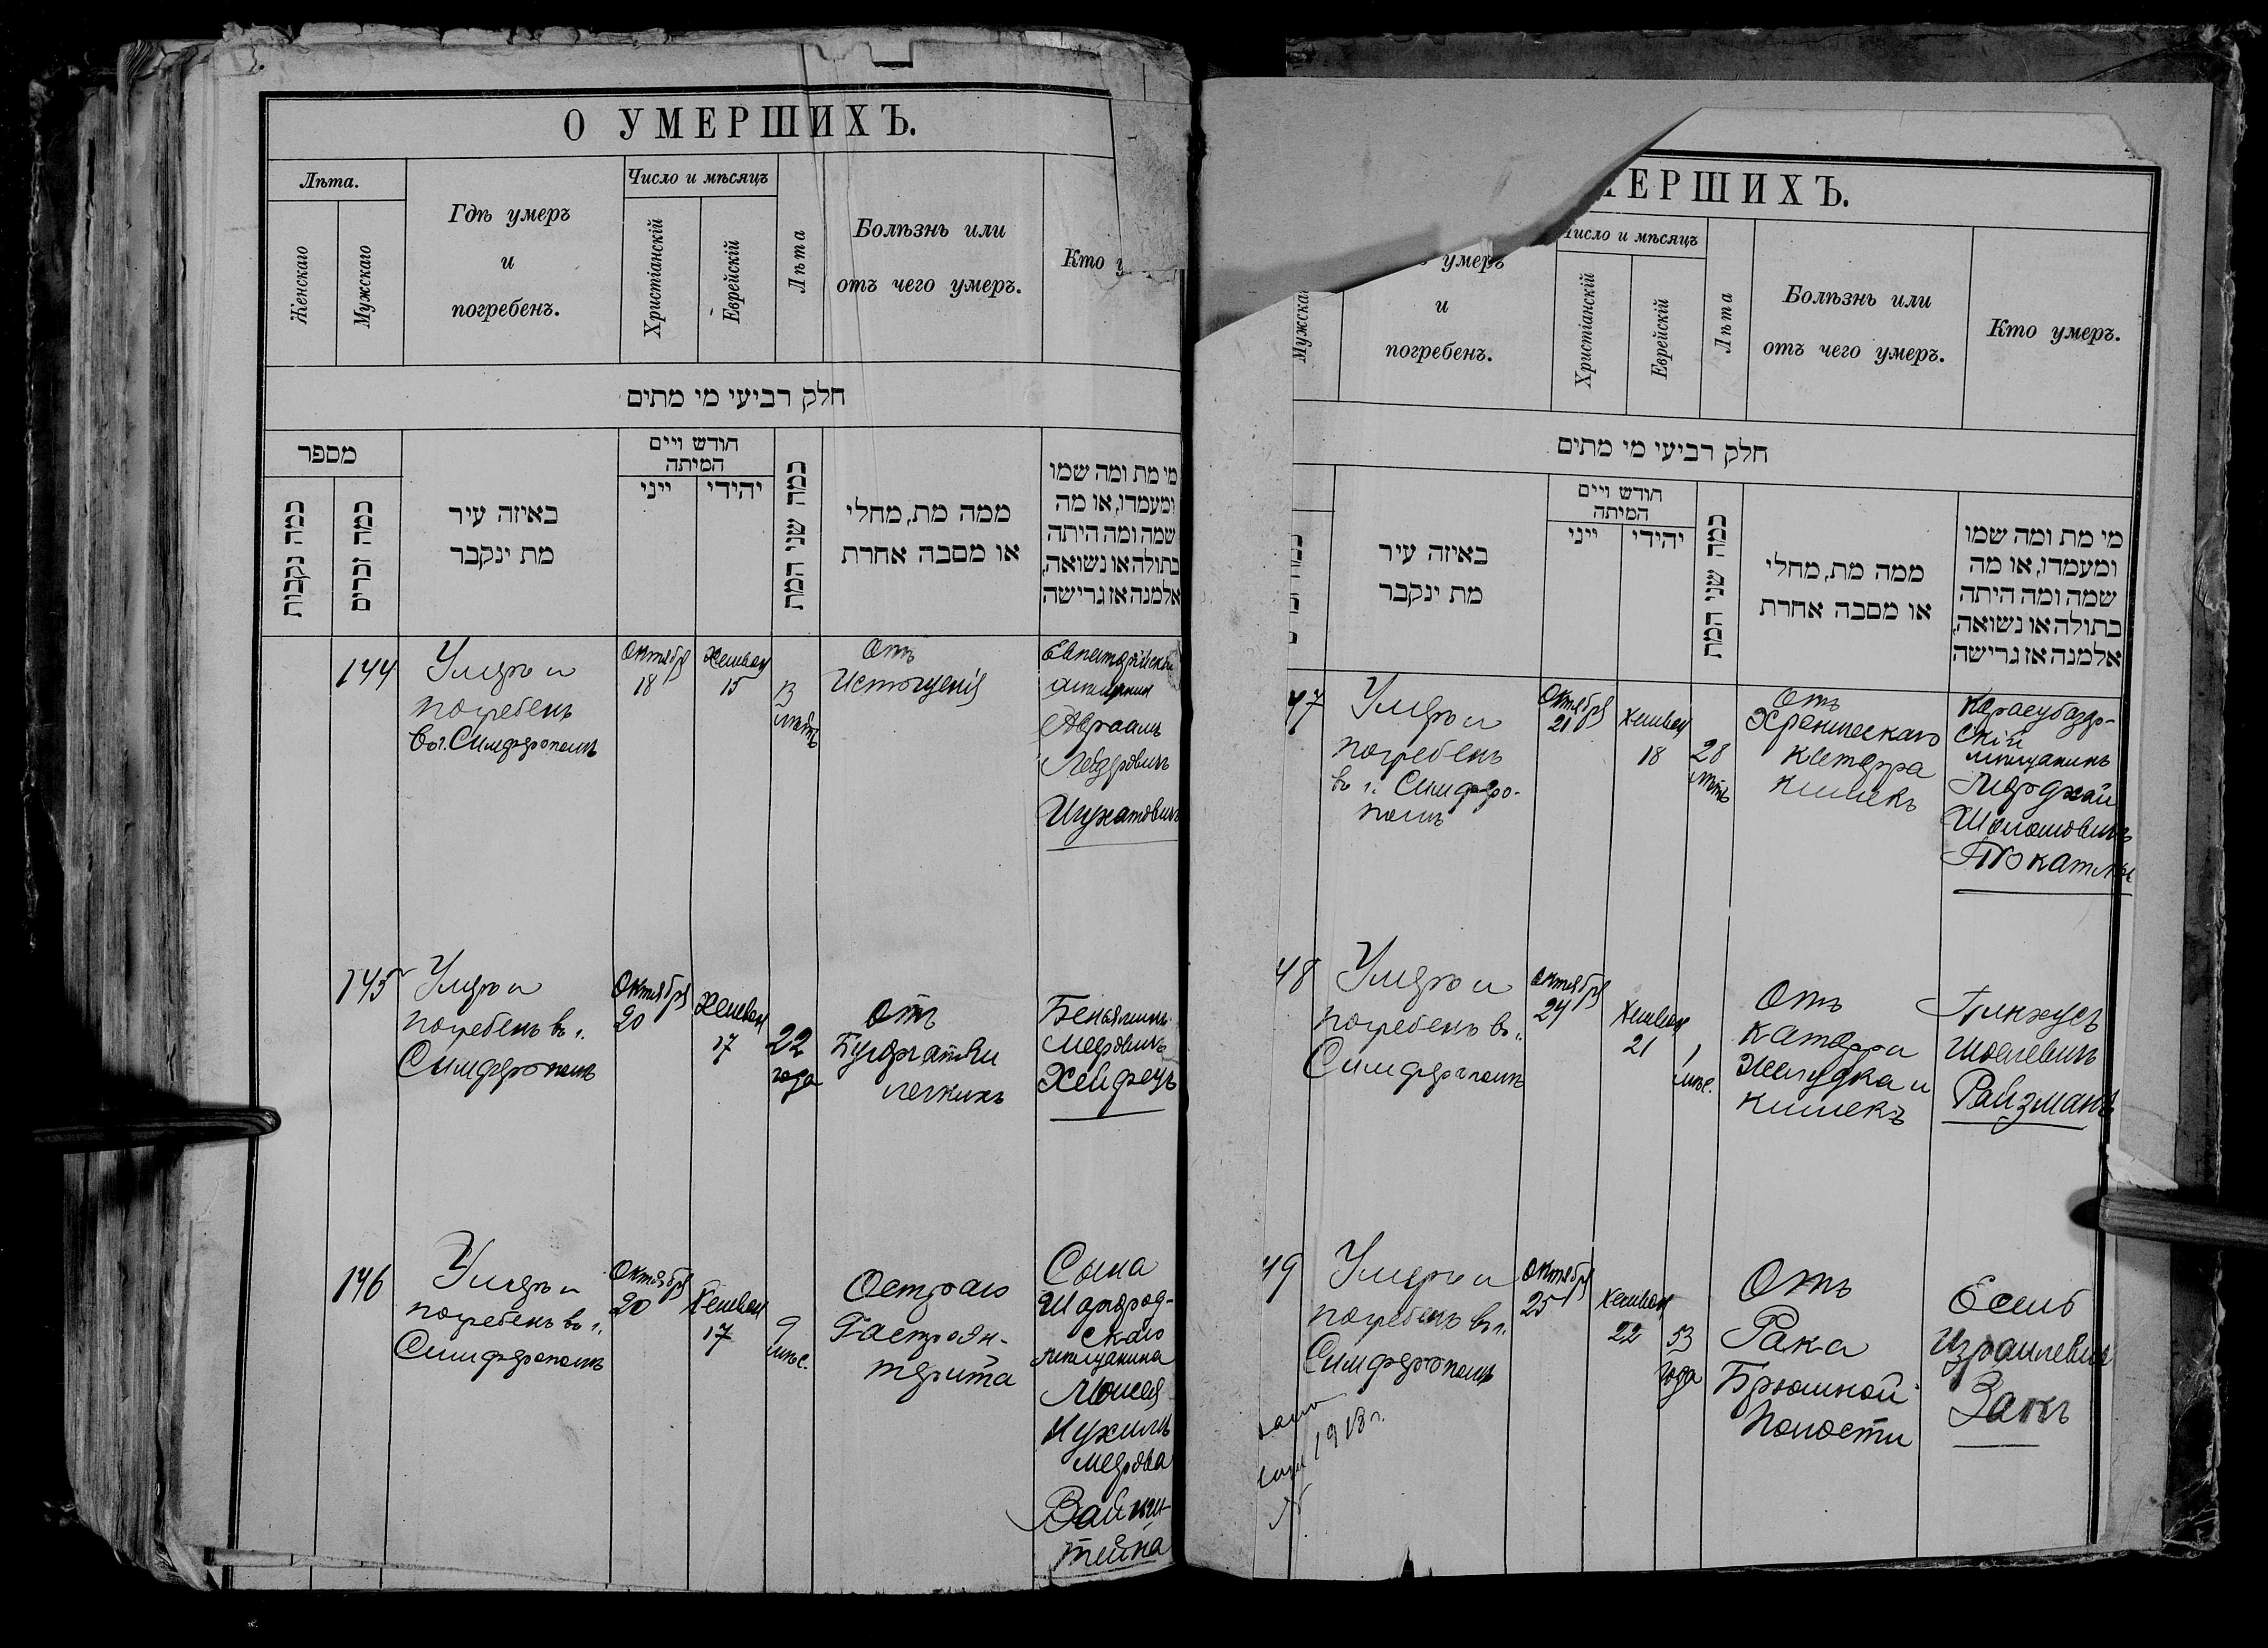 О УМЕРШИХЪ.
Лѣта.
Женскаго
Мужскаго
Гдѣ умеръ
и
погребенъ.
Число и мѣсяцъ
Христіанскій
Еврейскій
Лѣта
Болѣзнь или
отъ чего умеръ.
Кто
חלק רביעי מי מתים
מספר
כמה נקבות
כמה זכרים
באיזה עיר
מת ינקבר
חודש ויים
המיתה
ייני
יהידי
כמה שני המת
ממה מת, מחלי
או מסבה אחרת
מי מת ומה שמו
ומעמדו, או מה
שמה ומה היתה
בתולה או נשואה,
אלמנה אז גרישה
144
Умеръ и
погребенъ
въ г. Симферополѣ
Октября
18
Хешван
15
13
лѣтъ
Отъ
Истощенія
Евпаторійскій
мѣщанинъ
Авраамъ
145
Умеръ и
погребенъ въ г.
Симферополѣ
Октября
20
Хешван
17
22
года
Отъ
Бугорчатки
легкихъ
Беньяминъ
Мееровичъ
Хейфецъ
146
Умеръ и
погребенъ въ г.
Симферополѣ
Октября
20
Хешван
17
9
мѣс.
Остраго
Гастроэн-
терита
Сына
Шаргород-
скаго
мѣщанина
Моисея
Нухимъ
Меерова
Вайнш-
тейна
МЕРШИХЪ.
Мужска
умеръ
и
погребенъ.
Число и мѣсяцъ
Христіанскій
Еврейскій
Лѣта
Болѣзнь или
отъ чего умеръ.
Кто умеръ.
חלק רביעי מי מתים
באיזה עיר
מת ינקבר
חודש ויים
המיתה
ייני
יהידי
כמה שני המת
ממה מת, מחלי
או מסבה אחרת
מי מת ומה שמו
ומעמדו, או מה
שמה ומה היתה
בתולה או נשואה,
אלמנה אז גרישה
47
Умеръ и
погребенъ
въ г. Симферо-
полѣ
Октября
21
Хешван
18
28
лѣтъ
Отъ
Хроническаго
катарра
кишекъ
Карасубазар-
скій
мѣщанинъ
Мордхай
Шоломовичъ
Токатлы
48
Умеръ и
погребенъ въ г.
Симферополѣ
Октября
24
Хешван
21
1
мѣс.
Отъ
катарра
Желудка и
кишекъ
Пинхусъ
Шоелевичъ
Райзманъ
49
Умеръ и
погребенъ въ г.
Симферополѣ
Октября
25
Хешван
22
53
года
Отъ
Рака
Брюшной
Полости
Есель
Израилевичъ
Закъ
1918 г.